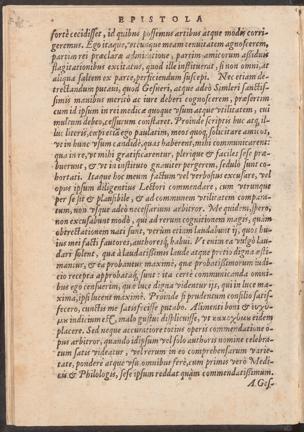 EPISTOLA
fortè cecidisset, id quibus possemus artibus atque modis corri-
geremus. Ego itaque, utcunque meam tenuitatem agnoscerem,
partim rei præclara admiratione, partim amicorum assiduis
flagitationibus excitatus, quod ille instituerat, si non omni, at
aliqua saltem ex parte, perficiendum suscepi. Nec etiam de-
trectandum putaui, quod Gesneri, atque adeò Simleri sanctis-
simis manibus meritò ac iure deberi cognoscerem, præsertim
cum id ipsum in rei medicæ quoque usum atque utilitatem, cui
multum debeo, cessurum constaret. Proinde scripsi huc atque il-
luc literis, cupiens ego paulatim, meos quoque solicitare amicos,
ut in hunc usum candidè, quas haberent, mihi communicarent:
qua in re, ut mihi gratificarentur, plerique & facilè sese præ-
buerunt, & ut in instituto gnauiter pergerem, sedulò sunt co-
hortati. Itaque hoc meum factum vel verbosius excusare, vel
opus ipsum diligentius Lectori commendare, cum utrunque
per se sit & plausibile, & ad communem utilitatem compara-
tum, non usque adeò necessarium arbitror. Me quidem, spero,
non excusabunt modò, qui ad rerum cognitionem magis, quàm
obtrectationem nati sunt, verùm etiam laudabunt ij, quos hu-
ius mei facti fautores, authoresque habui. Ut enim ea vulgò lau-
dari solent, quæ à laudatissimis laude atque pretio digna æsti-
mantur, & ea probantur maximè, quæ probatissimorum iudi-
cio recepta approbataque sunt: ita certè communicanda omni-
bus ego censuerim, quæ luce digna videntur ijs, qui in luce ma-
xima, ipsi lucent maximè. Proinde si prudentum consilio satis-
fecero, cunctis me satisfecisse putabo. Alimenti boni &
indicium est, malo gustui displicuisse, ut idem
placere. Sed neque accuratiore totius operis commendatione o-
pus arbitror, quando id ipsum vel solo authoris nomine celebra-
tum satis videatur, vel rerum in eo comprehensarum varie-
tate, pondere atque usu sese omnibus ferè, cum primis verò Medi-
cis & Philologis, sese ipsum reddat quàm commendatissimum.
A. Ges-